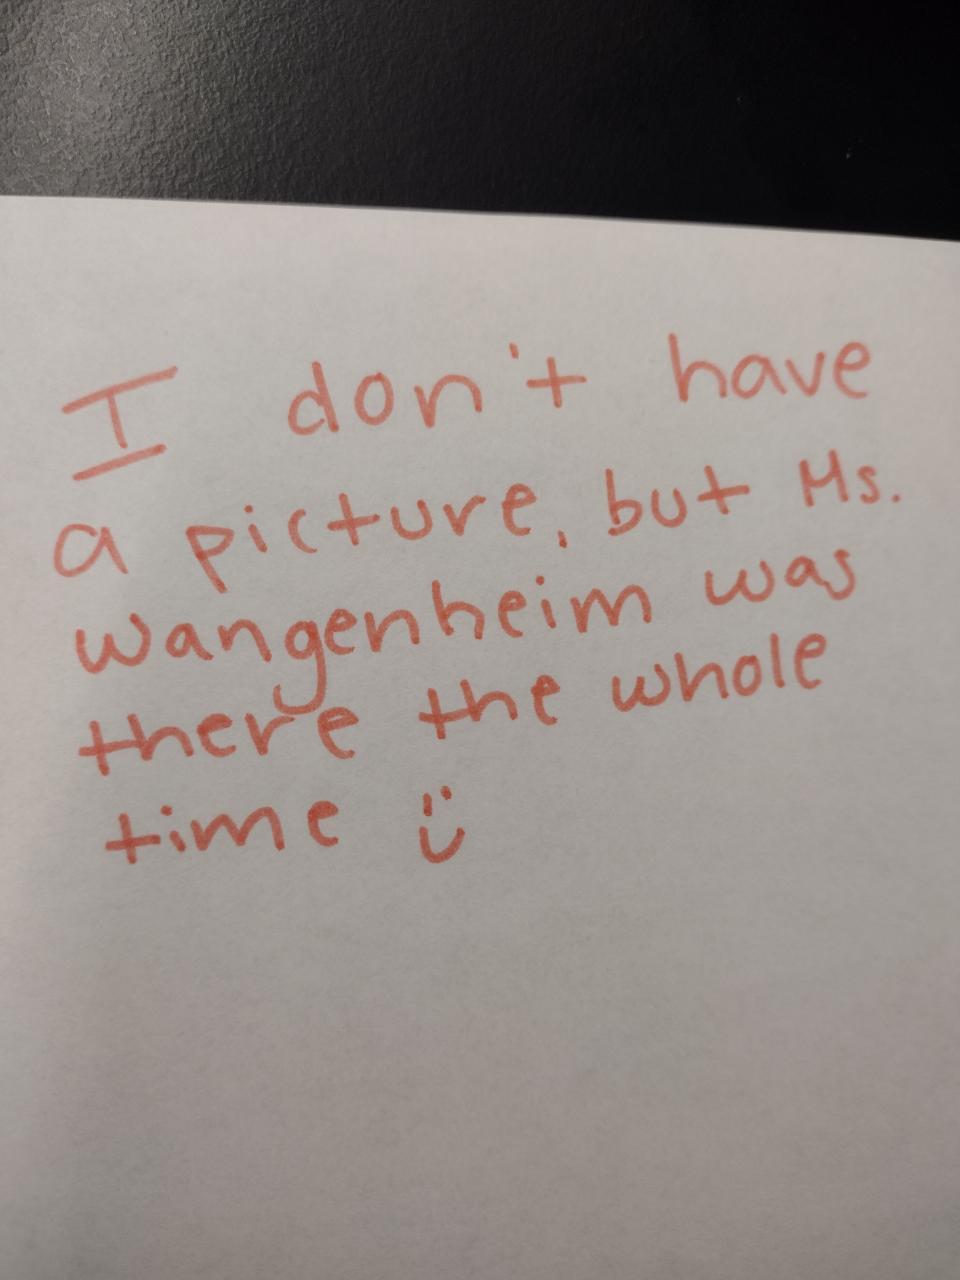 I don't have
a picture, but Ms.
Wangenheim was
there the whole
time :)